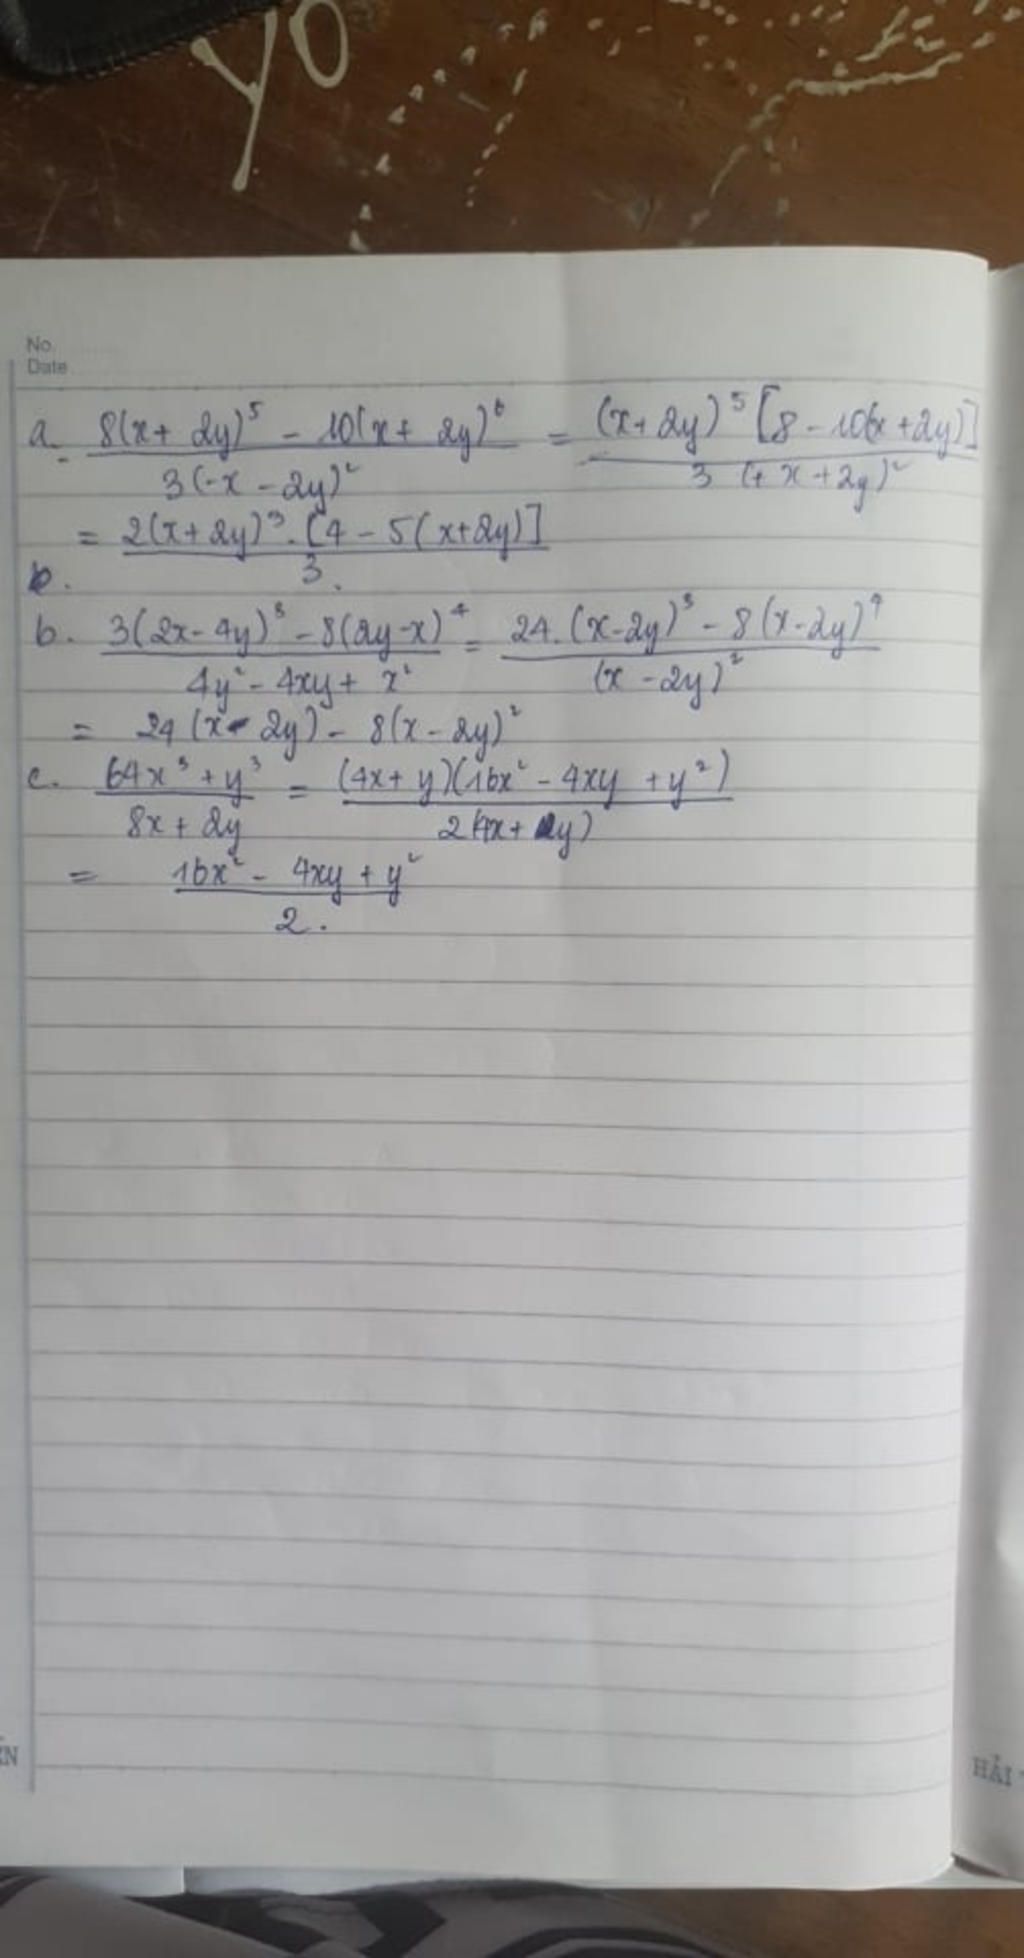 YO
No.
Date
a. \frac{8(x+2y)^5 - 10(x+2y)^6}{3(-x-2y)^2} = \frac{(x+2y)^5 [8-10(x+2y)]}{3(+x+2y)^2}
= \frac{2(x+2y)^3 . [4-5(x+2y)]}{3.}
b. \frac{3(2x-4y)^3 - 8(2y-x)^4}{4y^2 - 4xy + x^2} = \frac{24.(x-2y)^3 - 8(x-2y)^4}{(x-2y)^2}
= 24(x-2y) - 8(x-2y)^2
c. \frac{64x^3 + y^3}{8x+2y} = \frac{(4x+y)(16x^2 - 4xy + y^2)}{2(4x+y)}
= \frac{16x^2 - 4xy + y^2}{2.}
HẢI